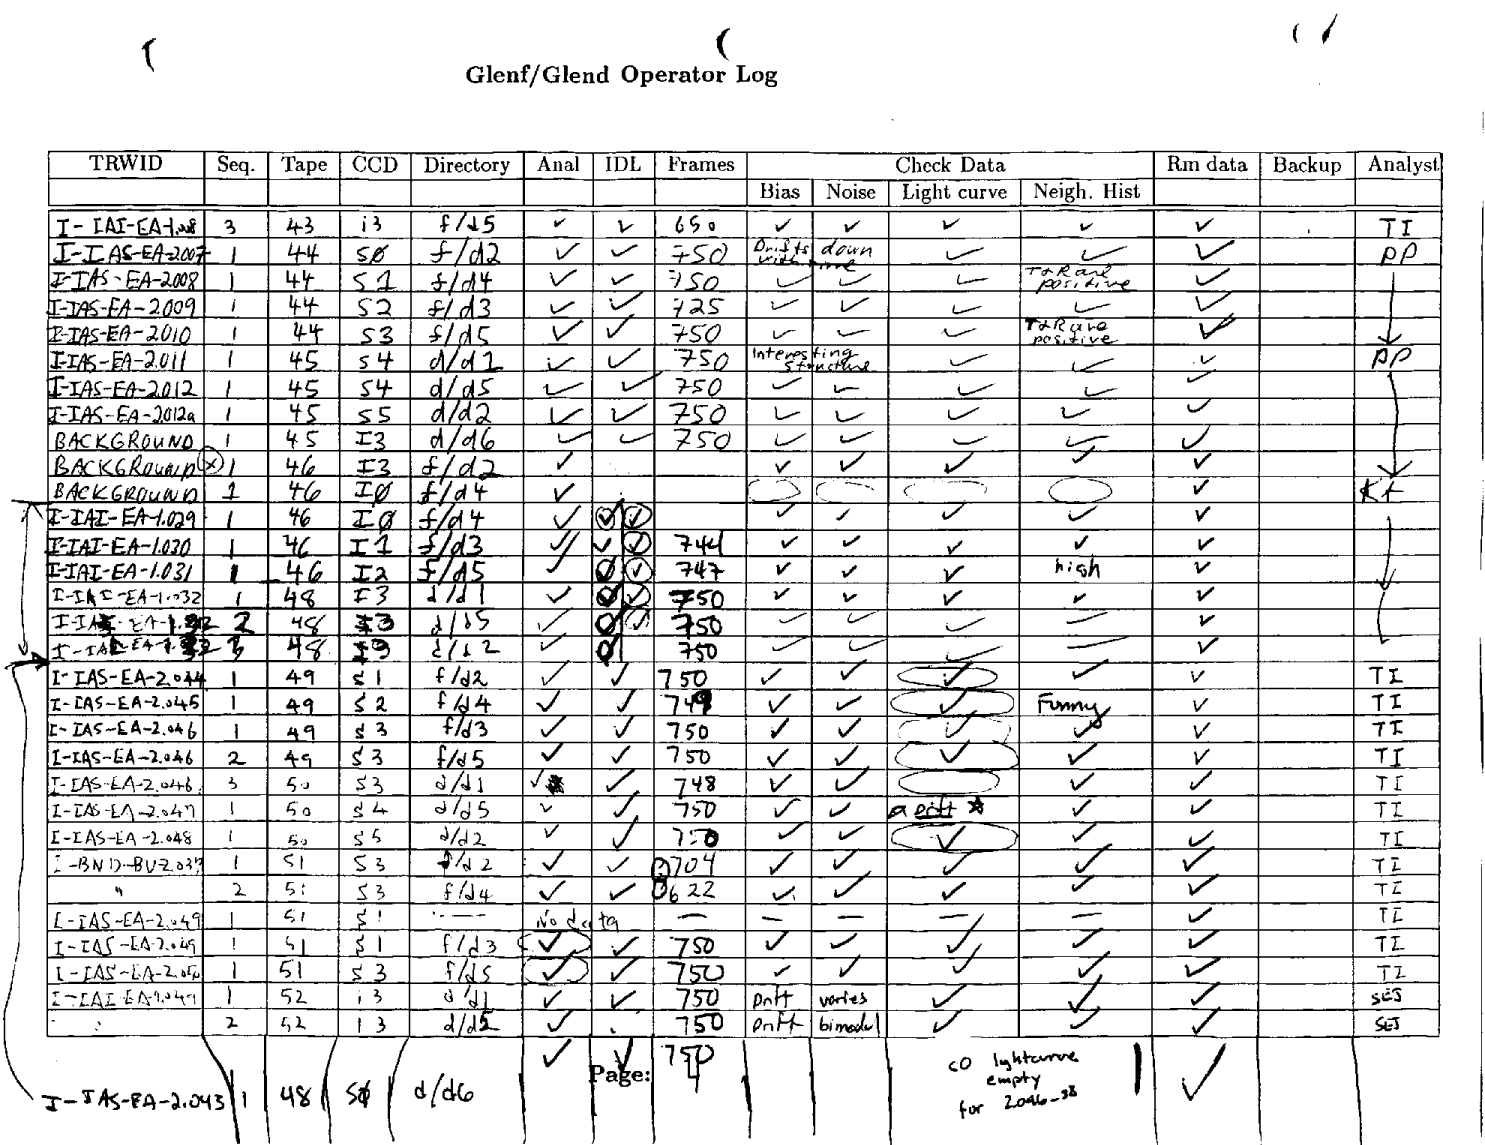 Glenf/Glend Operator Log
TRWID Seq. Tape CCD Directory Anal IDL Frames Check Data Rm data Backup Analyst
Bias Noise Light curve Neigh. Hist
I-IAI-EA-1.008 3 43 i3 f/d5 ✓ ✓ 650 ✓ ✓ ✓ ✓ ✓ TI
I-IAS-EA-2007 1 44 SØ f/d2 ✓ ✓ 750 Drifts down with time ✓ ✓ ✓ PP
I-IAS-EA-2008 1 44 S1 f/d4 ✓ ✓ 750 ✓ ✓ ✓ T+R are positive ✓
I-IAS-EA-2009 1 44 S2 f/d3 ✓ ✓ 725 ✓ ✓ ✓ ✓ ✓
I-IAS-EA-2010 1 44 S3 f/d5 ✓ ✓ 750 ✓ ✓ ✓ T+R are positive ✓
I-IAS-EA-2.011 1 45 S4 d/d1 ✓ ✓ 750 Interesting structure ✓ ✓ ✓ PP
I-IAS-EA-2.012 1 45 S4 d/d5 ✓ ✓ 750 ✓ ✓ ✓ ✓ ✓
I-IAS-EA-2.012a 1 45 S5 d/d2 ✓ ✓ 750 ✓ ✓ ✓ ✓ ✓
BACKGROUND 1 45 I3 d/d6 ✓ ✓ 750 ✓ ✓ ✓ ✓ ✓
BACKGROUND (x) 1 46 I3 f/d2 ✓ ✓ ✓ ✓ ✓ ✓
BACKGROUND 1 46 IØ f/d4 ✓ ✓
I-IAI-EA-1.029 1 46 IØ f/d4 ✓ ✓ ✓ ✓ ✓ ✓ ✓ ✓
I-IAI-EA-1.030 1 46 I1 f/d3 ✓ ✓ ✓ 744 ✓ ✓ ✓ ✓ ✓
I-IAI-EA-1.031 1 46 I2 f/d5 ✓ ✓ ✓ 747 ✓ ✓ ✓ high ✓
I-IAI-EA-1.032 1 48 I3 d/d1 ✓ ✓ ✓ 750 ✓ ✓ ✓ ✓ ✓
2 48 I3 d/d5 ✓ ✓ 750 ✓ ✓ ✓ ✓ ✓
3 48 d/d2 ✓ 750 ✓ ✓ ✓ ✓
I-IAS-EA-2.044 1 49 S1 f/d2 ✓ ✓ 750 ✓ ✓ ✓ ✓ ✓ TI
I-IAS-EA-2.045 1 49 S2 f/d4 ✓ ✓ 749 ✓ ✓ ✓ Funny ✓ TI
I-IAS-EA-2.046 1 49 S3 f/d3 ✓ ✓ 750 ✓ ✓ ✓ ✓ ✓ TI
I-IAS-EA-2.046 2 49 S3 f/d5 ✓ ✓ 750 ✓ ✓ ✓ ✓ ✓ TI
I-IAS-EA-2.046 3 50 S3 d/d1 ✓ ✓ 748 ✓ ✓ ✓ ✓ TI
I-IAS-EA-2.047 1 50 S4 d/d5 ✓ ✓ 750 ✓ ✓ ✓ ✓ TI
I-IAS-EA-2.048 1 50 S5 d/d2 ✓ ✓ 750 ✓ ✓ ✓ ✓ ✓ TI
I-BND-BU-2.037 1 51 S3 d/d2 ✓ ✓ 704 ✓ ✓ ✓ ✓ ✓ TI
" 2 51 S3 f/d4 ✓ ✓ 622 ✓ ✓ ✓ ✓ ✓ TI
I-IAS-EA-2.049 1 51 S1 ---- No data — — — — — ✓ TI
I-IAS-EA-2.049 1 51 S1 f/d3 ✓ ✓ 750 ✓ ✓ ✓ ✓ ✓ TI
I-IAS-EA-2.050 1 51 S3 f/d5 ✓ ✓ 750 ✓ ✓ ✓ ✓ ✓ TI
I-IAI-EA-1.049 1 52 i3 d/d1 ✓ ✓ 750 Drift varies ✓ ✓ ✓ SEJ
" 2 52 i3 d/d5 ✓ 750 Drift bimodal ✓ ✓ ✓ SEJ
I-IAS-EA-2.043 1 48 SØ d/d6 ✓ ✓ 750 ✓
Page:
CO lightcurve
empty
for 2046-S3